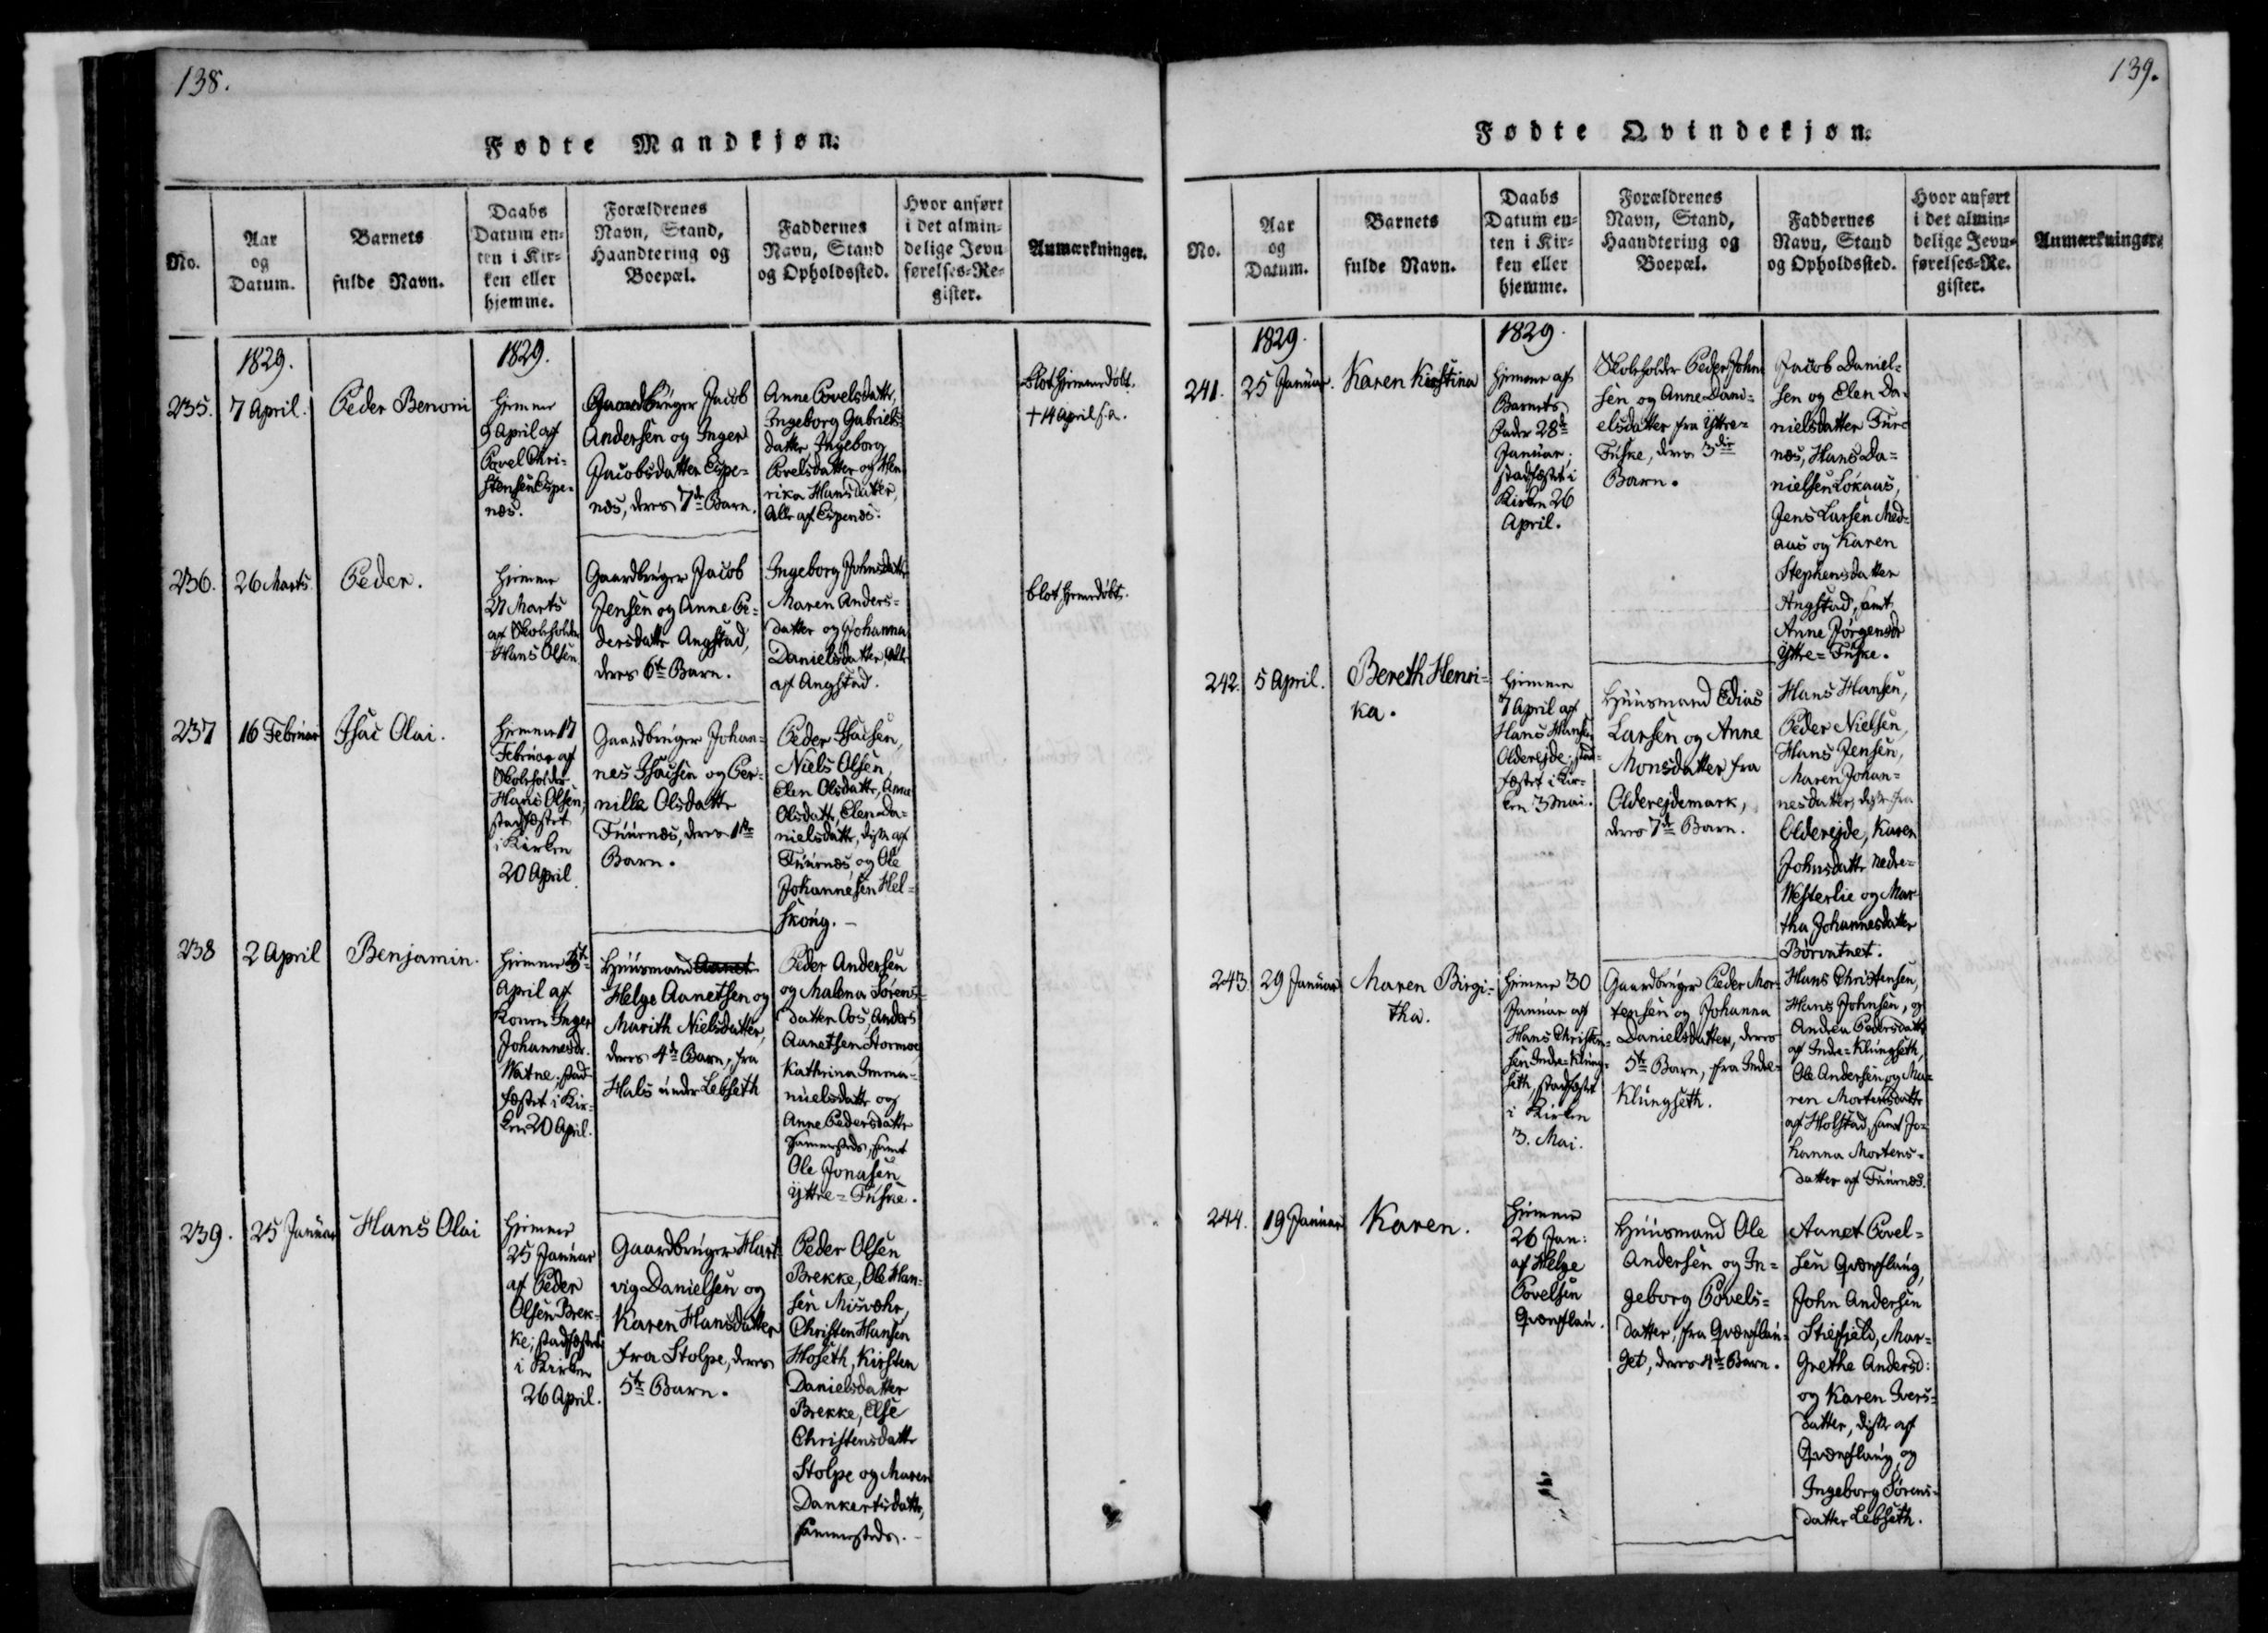 138.
Fødte Mandkjøn.
No.
Aar
og
Datum.
Barnets
fulde Navn.
Daabs
Datum en-
ten i Kir-
ken eller
hjemme.
Forældrenes
Navn, Stand,
Haandtering og
Boepæl.
Faddernes
Navn, Stand
og Opholdssted.
Hvor anført
i det almin-
delige Jevn
førelses-Re-
gister.
Anmærkninger.
1829.
1829.
235.
7 April.
Peder Benoni
Hjemme
9 April af
Povel Chri-
stensen Espe-
næs.
Gaardbruger Jacob
Andersen og Inger
Jacobsdatter Espe-
næs, deres 7de Barn.
Anne Povelsdatter,
Ingeborg Gabriels-
datter, Ingeborg
Povelsdatter og Hen
rika Hansdatter,
Alle af Espenæs.
blot hjemmedøbt.
+ 14 April s.a.
236.
26 Marts.
Peder.
Hjemme
27 Marts
af Skoleholder
Hans Olsen
Gaardbruger Jacob
Jensen og Anne Pe-
dersdatter Angstad,
deres 6te Barn.
Ingeborg Johnsdatter
Maren Anders-
datter og Johanna
Danielsdatter, Alle
af Angstad.
blot hjemedøbt.
237
16 Februar
Isac Olai.
Hjemme 17
Februar af
Skoleholder
Hans Olsen;
stadfæstet
i Kirken
20 April.
Gaardbruger Johan-
nes Isacsen og Per-
nilla Olsdatter
Fuurnæs, deres 1ste
Barn.
Peder Isacsen,
Niels Olsen,
Elen Olsdatter, Anna
Olsdatter, Elen Da-
nielsdatter, disse af
Fuurnæs, og Ole
Johannesen Hel-
skoug. —
238
2 April
Benjamin.
Hjemme 5te
April af
Konen Inger
Johannesdr.
Watne; stad-
fæstet i Kir-
ken 20 April.
Huusmand Aanet
Helge Aanetsen og
Marith Nielsdatter,
deres 4de Barn, fra
Hals under Lebseth
Peder Andersen
og Malena Sørens-
datter Oos, Anders
Aanetsen Stormoe,
Kathrina Imma-
nuelsdatter og
Anne Pedersdatter
sammesteds, samt
Ole Jonasen
Yttre=Fuske.
239.
25 Januar
Hans Olai
Hjemme
25 Januar
af Peder
Olsen Brek-
ke; stadfæstet
i Kirken
26 April.
Gaardbruger Hart
vig Danielsen og
Karen Hansdatter
fra Stolpe, deres
5te Barn.
Peder Olsen
Brekke, Ole Han-
sen Misvæhr,
Christen Hansen
Hoseth, Kirsten
Danielsdatter
Brekke, Else
Christensdatter
Stolpe og Maren
Dankertsdatter,
sammesteds. —
139.
Fødte Qvindekjøn.
No.
Aar
og
Datum.
Barnets
fulde Navn.
Daabs
Datum en-
ten i Kir-
ken eller
hjemme.
Forældrenes
Navn, Stand,
Haandtering og
Boepæl.
Faddernes
Navn, Stand
og Opholdssted.
Hvor anført
i det almin-
delige Jevn-
førelses-Re-
gister.
Anmærkninger.
1829.
1829.
241.
25 Januar.
Karen Kirstina
Hjemme af
Barnets
Fader 28de
Januar;
stadfæstet i
Kirken 26
April.
Skoleholder Peder John
sen og Anne Dani-
elsdatter fra Yttre-
Fuske, deres 3die
Barn.
Jacob Daniel-
sen og Elen Da-
nielsdatter Fur-
næs, Hans Da-
nielsen Løkaas,
Jens Larsen Med-
aas og Karen
Stephensdatter
Angstad, samt
Anne Jørgensdr
Yttre=Fuske.
242.
5 April.
Bereth Henri-
ka.
Hjemme
7 April af
Hans Hansen
Oldereyde; stad-
fæstet i Kir-
ken 3 Mai.
Huusmand Edias
Larsen og Anne
Monsdatter fra
Oldereydemark,
deres 7de Barn.
Hans Hansen,
Peder Nielsen,
Hans Jensen,
Maren Johan-
nesdatter, disse fra
Oldereyde, Karen
Johnsdatter Nedre-
Westerlie og Mar
tha Johannesdatter
Børvatnet.
243.
29 Januar
Maren Birgi-
tha.
Hjemme 30
Januar af
Hans Christen-
sen Indre=Klung-
seth, stadfæstet
i Kirken
3. Mai.
Gaardbruger Peder Mor-
tensen og Johanna
Danielsdatter, deres
5te Barn, fra Indre-
Klungseth.
Hans Christensen,
Hans Johnsen, og
Andrea Pedersdatter
af Indre=Klungseth,
Ole Andersen og Ma-
ren Mortensdatter
af Holstad, samt Jo-
hanna Mortens-
datter af Fuurnæs.
244.
19 Januar
Karen.
Hjemme
26 Jan:
af Helge
Povelsen
Qvænflau.
Huusmand Ole
Andersen og In-
geborg Povels-
datter, fra Qvænflau-
get, deres 4de Barn.
Aanet Povel-
sen Qvænflaug,
John Andersen
Stiefjeld, Mar-
grethe Andersd:
og Karen Ivers-
datter, disse af
Qvænflaug, og
Ingeborg Sørens-
datter Lebseth.